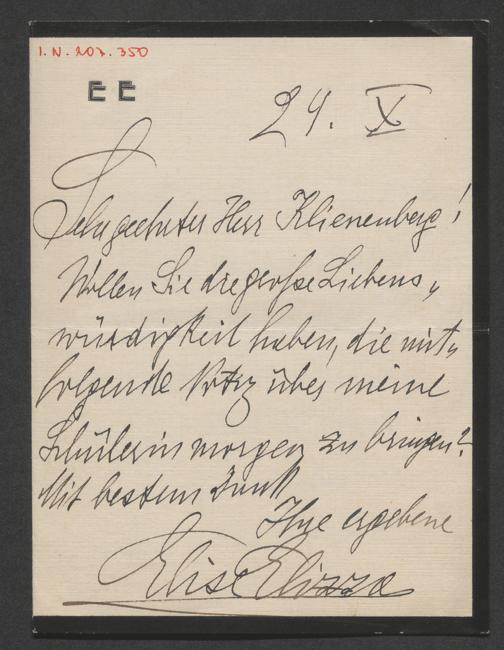 I.N. 207.350
EE
24. X
Sehrgeehrter Herr Klienenberg!
Wollen Sie die große Liebens„
würdigkeit haben, die mit„
folgende Notiz über meine
Schülerin morgen zu bringen?
Mit bestem Dank
Ihre ergebene
Elise Elizza